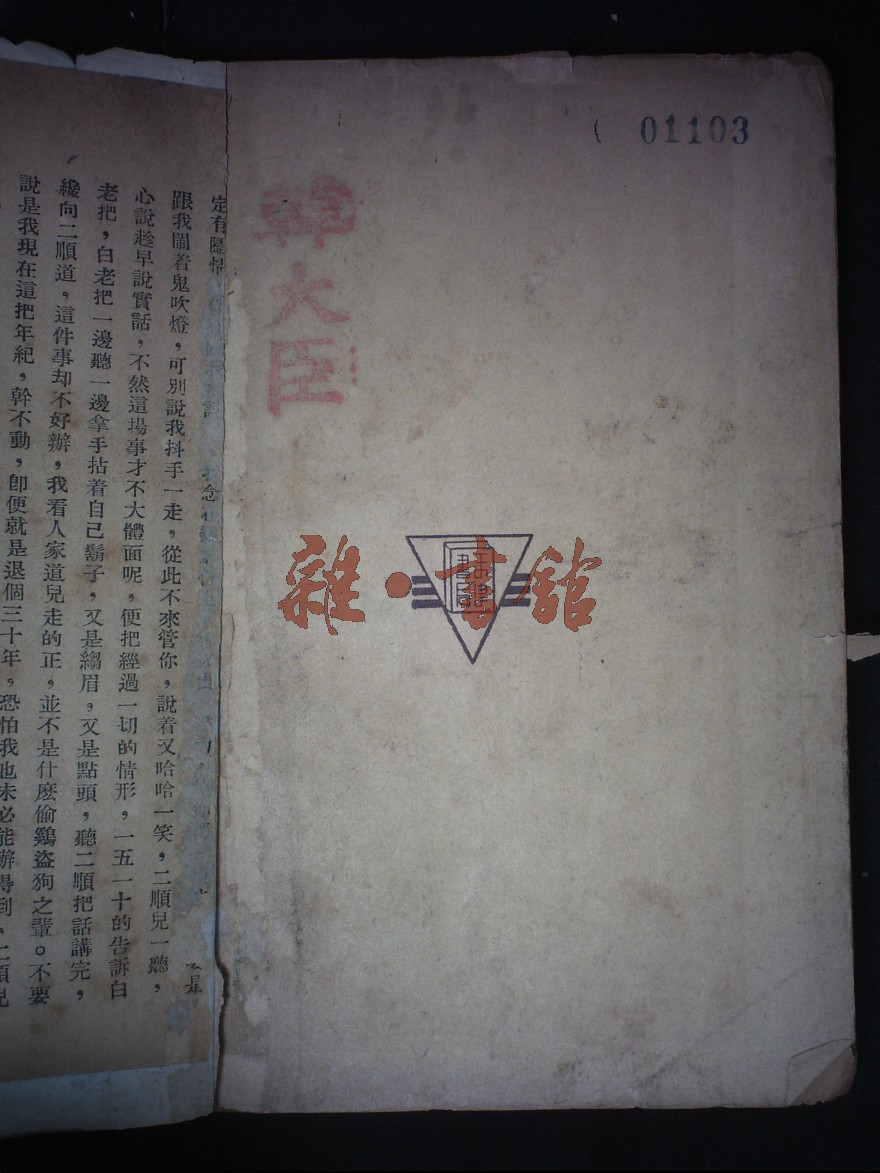 01103
韓大臣
雜·書館
定有隱情
跟我鬧着鬼吹燈，可別說我抖手一走，從此不來管你，說着又哈哈一笑，二順兒一聽，
心說趁早說實話，不然這場事才不大體面呢，便把經過一切的情形，一五一十的告訴白
老把，白老把一邊聽一邊拿手拈着自己鬍子，又是縐眉，又是點頭，聽二順把話講完，
纔向二順道。這件事却不好辦，我看人家道兒走的正，並不是什麽偷鷄盜狗之輩。不要
說是我現在這把年紀，幹不動，卽便就是退個三十年，恐怕我也未必能辦得到，二順兒